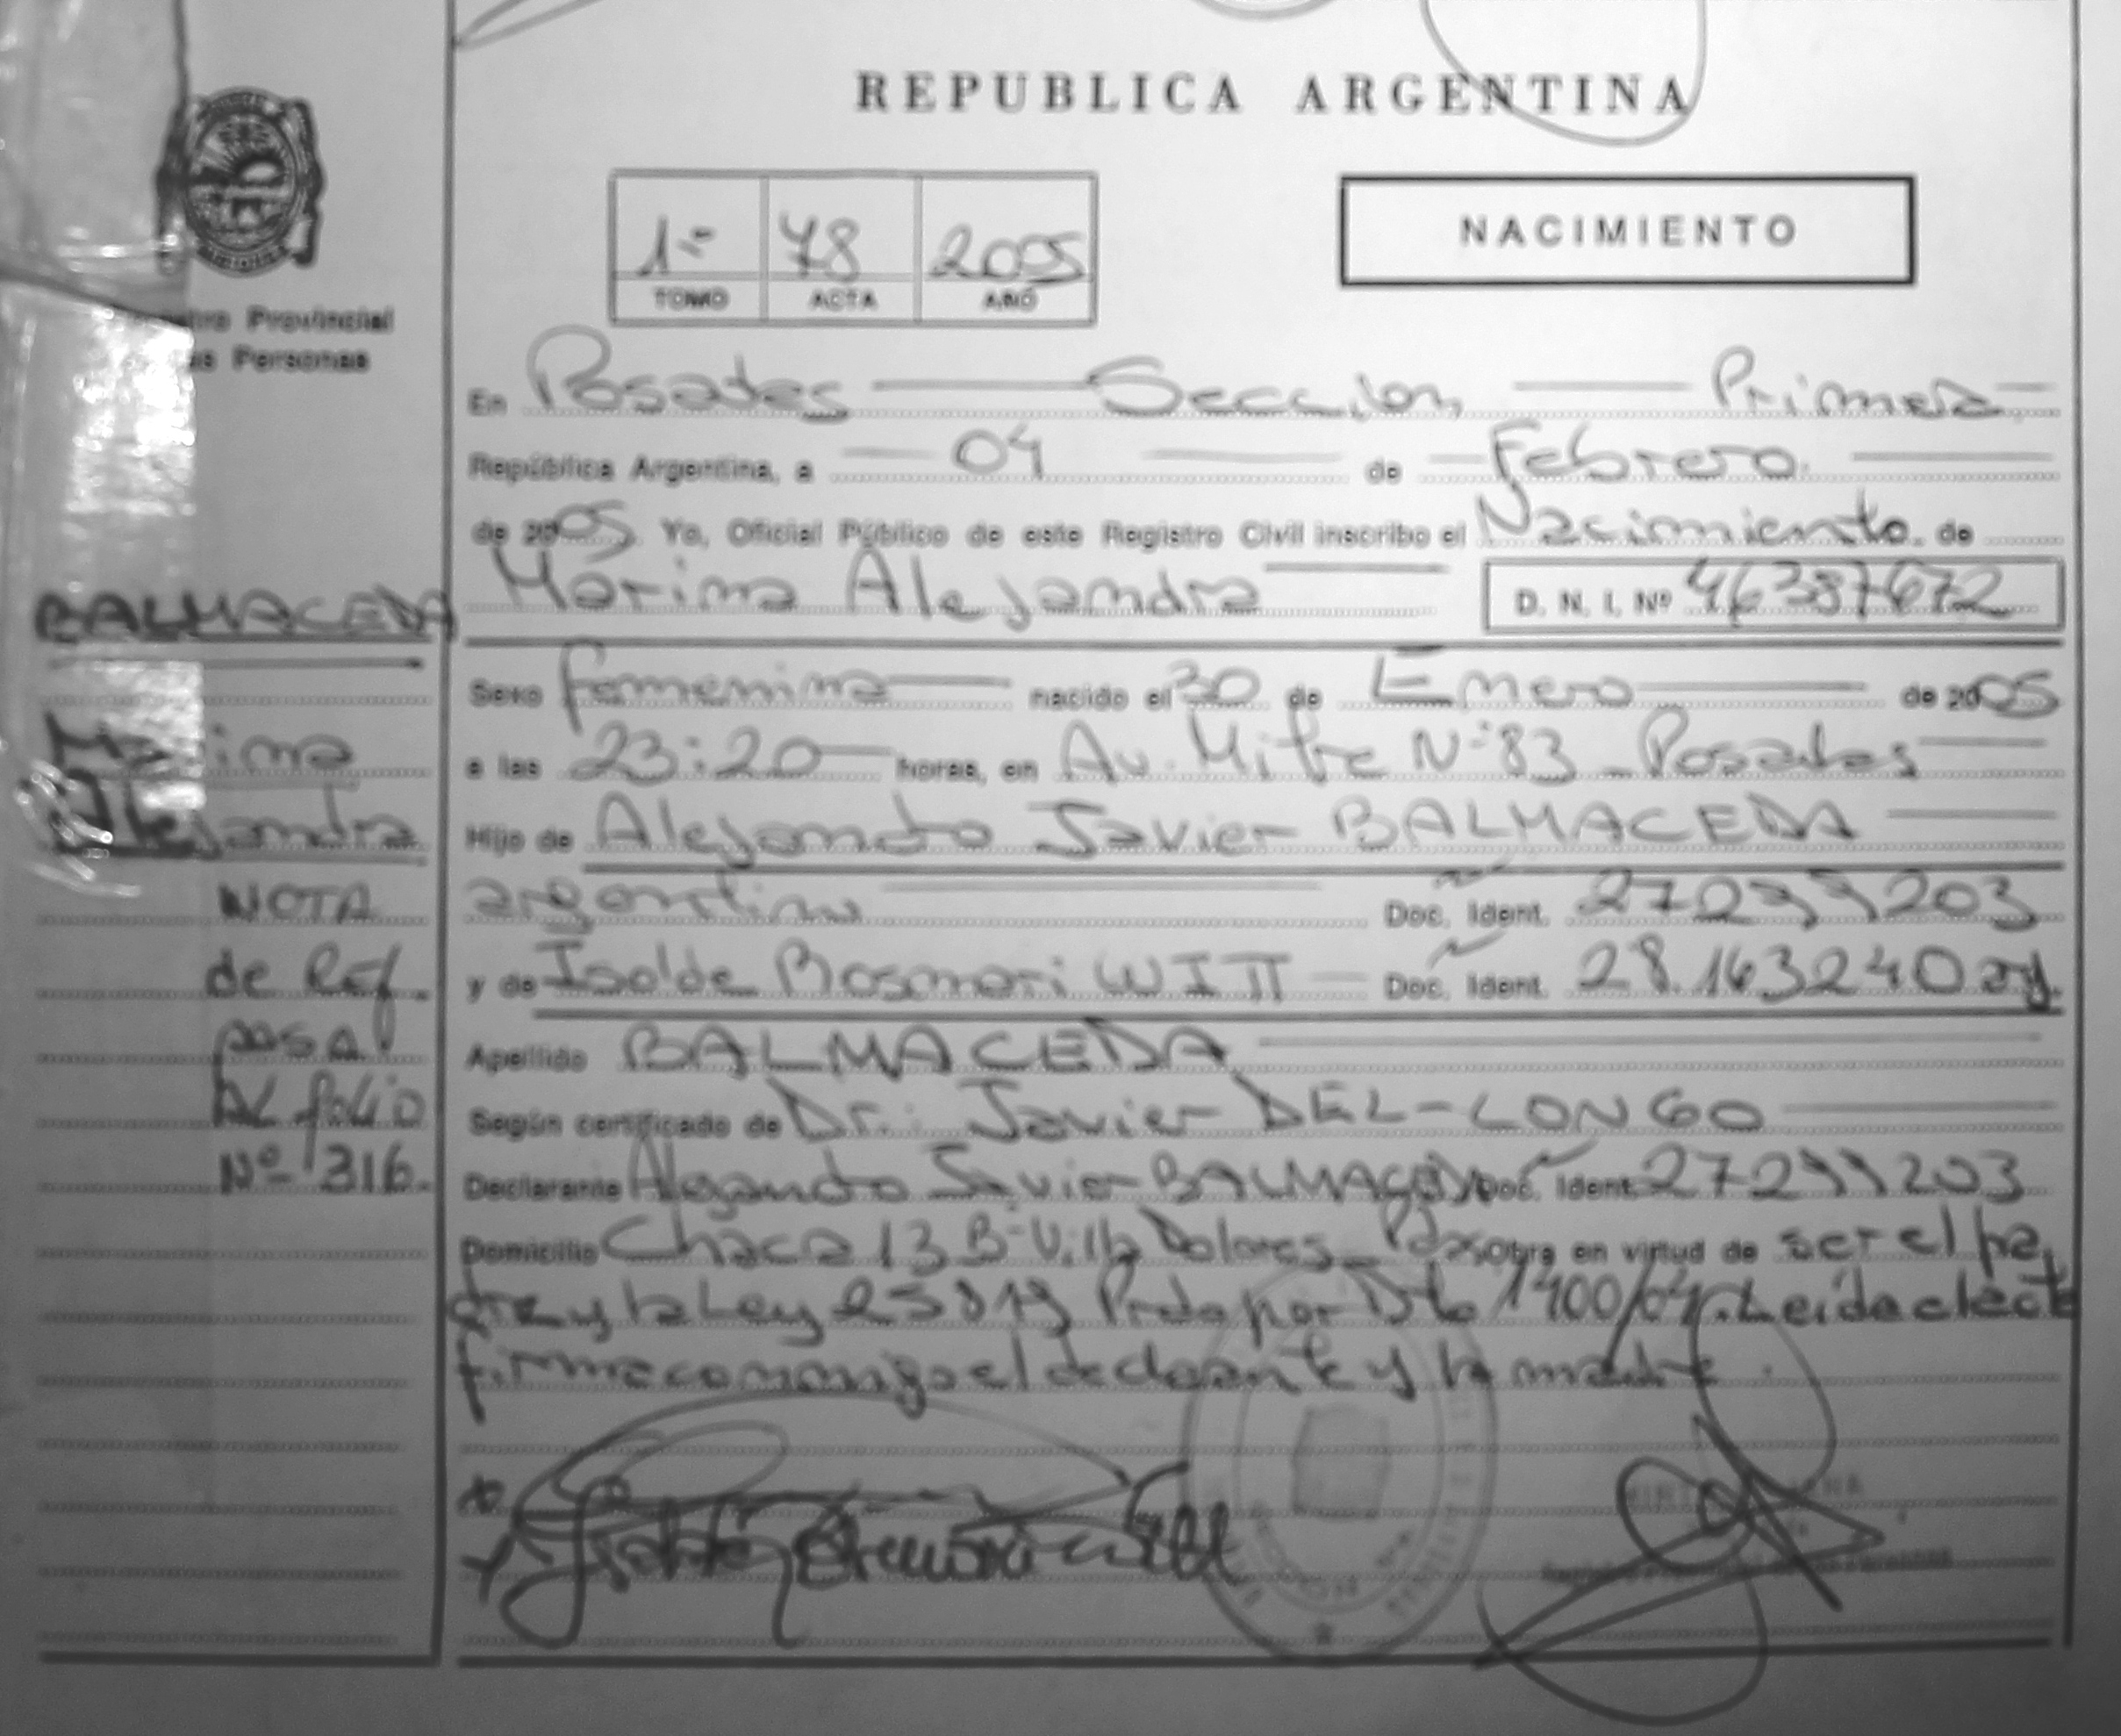 REPUBLICA ARGENTINA
1º 78 2005
TOMO ACTA AÑO
NACIMIENTO
Provincial
Personas
En Posadas Seccion Primera
República Argentina, a 04 de Febrero
de 2005 Yo, Oficial Público de este Registro Civil inscribo el Nacimiento de
Marina Alejandra D. N. I. Nº 46387672
Sexo femenina nacido el 30 de Enero de 2005
a las 23:20 horas, en Av. Mitre Nº 83 Posadas
Hijo de Alejandro Javier BALMACEDA
argentino Doc. Ident. 27299203
y de Isolde Rosmari WITT Doc. Ident. 28.163240 arg.
Apellido BALMACEDA
Según certificado de Dr. Javier DEL-LONGO
Declarante Alejandro Javier BALMACEDA Doc. Ident. 27299203
Domicilio Chaca 13 Bº Villa Dolores Obra en virtud de ser el pa
dre y la Ley 25819 por Dto 1400/04. Leida el acta
firma conmigo el declarante y la madre.
BALMACEDA
Marina
Alejandra
NOTA
de Ref.
pasa
AL folio
Nº 316.